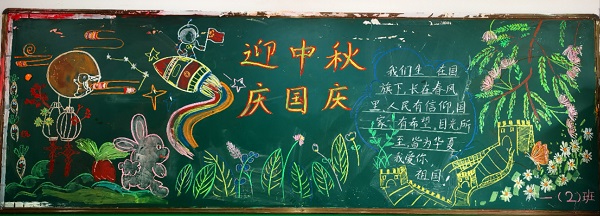 迎中秋
庆国庆
我们生 在国
旗下,长在春风
里,人民有信仰,国
家 有希望,目光所
至,皆为华夏
我爱你,
祖国!
一(2)班